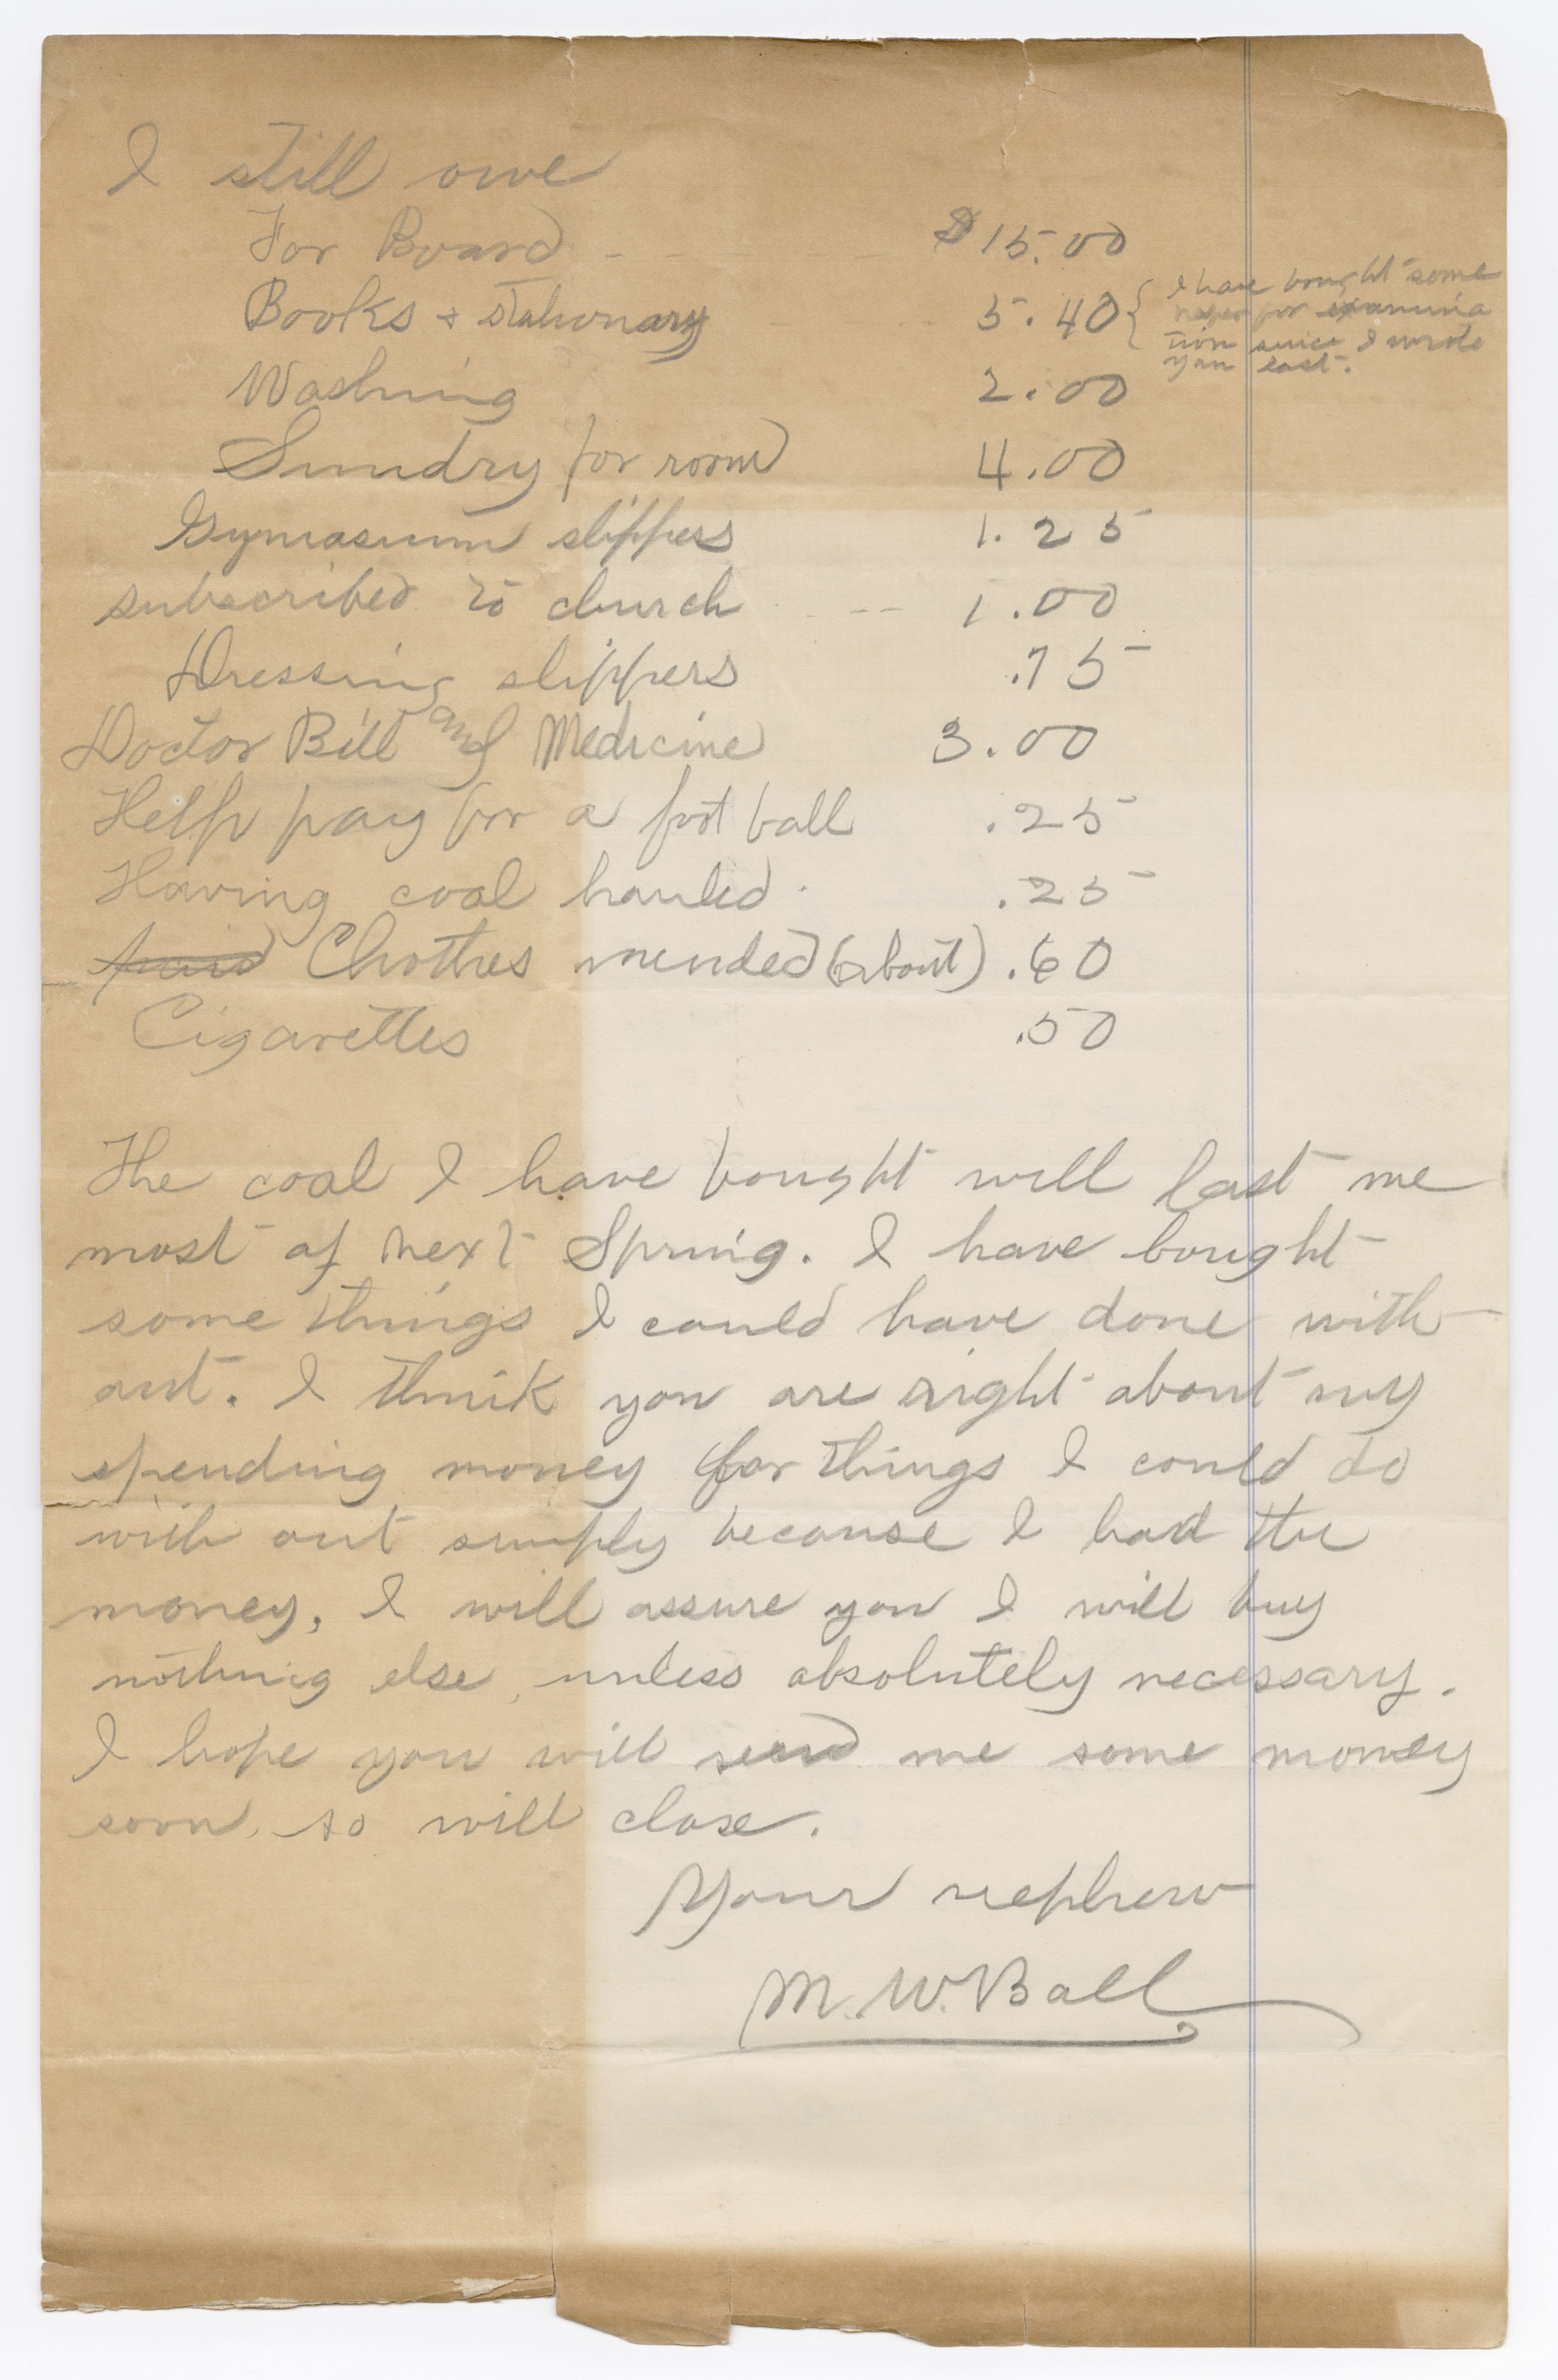 I still owe
For Board - - $15.00
Books & stationary 5.40 { I have bought some
paper for examina
tion since I wrote
you last.
Washing 2.00
Sundry for room 4.00
Gymnasium slippers 1.25
subscribed to church -- 1.00
Dressing slippers .75
Doctor Bill and Medicine 3.00
Help pay for a foot ball .25
Having coal hauled .25
paid Clothes mended (about) .60
Cigarettes .50
The coal I have bought will last me
most of next Spring. I have bought
some things I could have done with
out. I think you are right about my
spending money for things I could do
with out simply because I had the
money, I will assure you I will buy
nothing else, unless absolutely necessary.
I hope you will send me some money
soon, so will close.
Your nephew
M. W. Ball